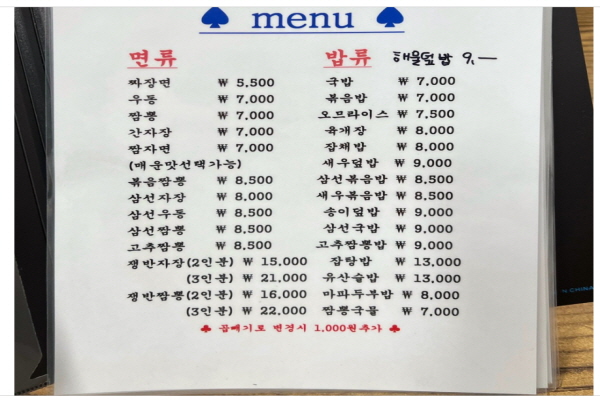 ♠ menu ♠
면류
짜장면 ₩ 5,500
우동 ₩ 7,000
짬뽕 ₩ 7,000
간자장 ₩ 7,000
짬자면 ₩ 7,000
(매운맛선택가능)
볶음짬뽕 ₩ 8,500
삼선자장 ₩ 8,000
삼선우동 ₩ 8,500
삼선짬뽕 ₩ 8,500
고추짬뽕 ₩ 8,500
쟁반자장(2인분) ₩ 15,000
(3인분) ₩ 21,000
쟁반짬뽕(2인분) ₩ 16,000
(3인분) ₩ 22,000
밥류 해물덮밥 9,—
국밥 ₩ 7,000
볶음밥 ₩ 7,000
오므라이스 ₩ 7,500
육개장 ₩ 8,000
잡채밥 ₩ 8,000
새우덮밥 ₩ 9,000
삼선볶음밥 ₩ 8,500
새우볶음밥 ₩ 8,500
송이덮밥 ₩ 9,000
삼선국밥 ₩ 9,000
고추짬뽕밥 ₩ 9,000
잡탕밥 ₩ 13,000
유산슬밥 ₩ 13,000
마파두부밥 ₩ 8,000
짬뽕국물 ₩ 7,000
♣ 곱빼기로 변경시 1,000원추가 ♣